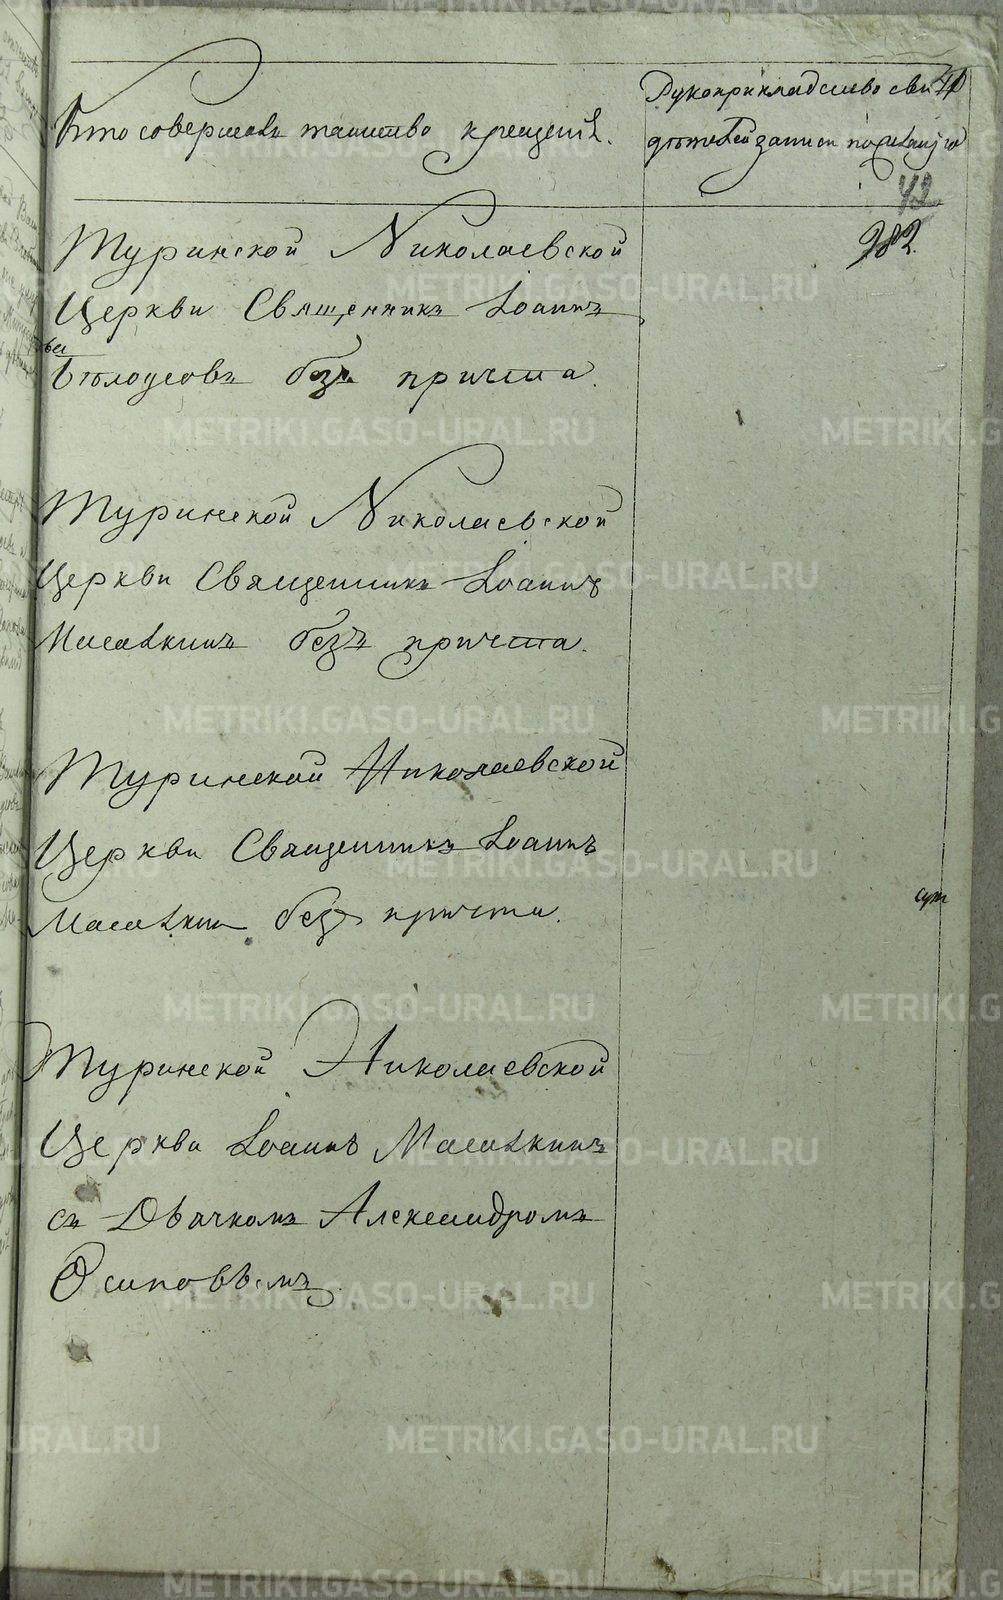 Кто совершалъ таинство крещенія.
Рукоприкладство сви
дѣтелей записи по желанію
42
282
Туринской Николаевской
Церкви Священникъ Іоаннъ
Бѣлоусовъ безъ причта.
Туринской Николаевской
Церкви Священникъ Іоаннъ
безъ причта.
Туринской Николаевской
Церкви Священникъ Іоаннъ
безъ причта.
Туринской Николаевской
Церкви Іоаннъ
съ Дьячкомъ Александромъ
Осиповымъ.
METRIKI.GASO-URAL.RU